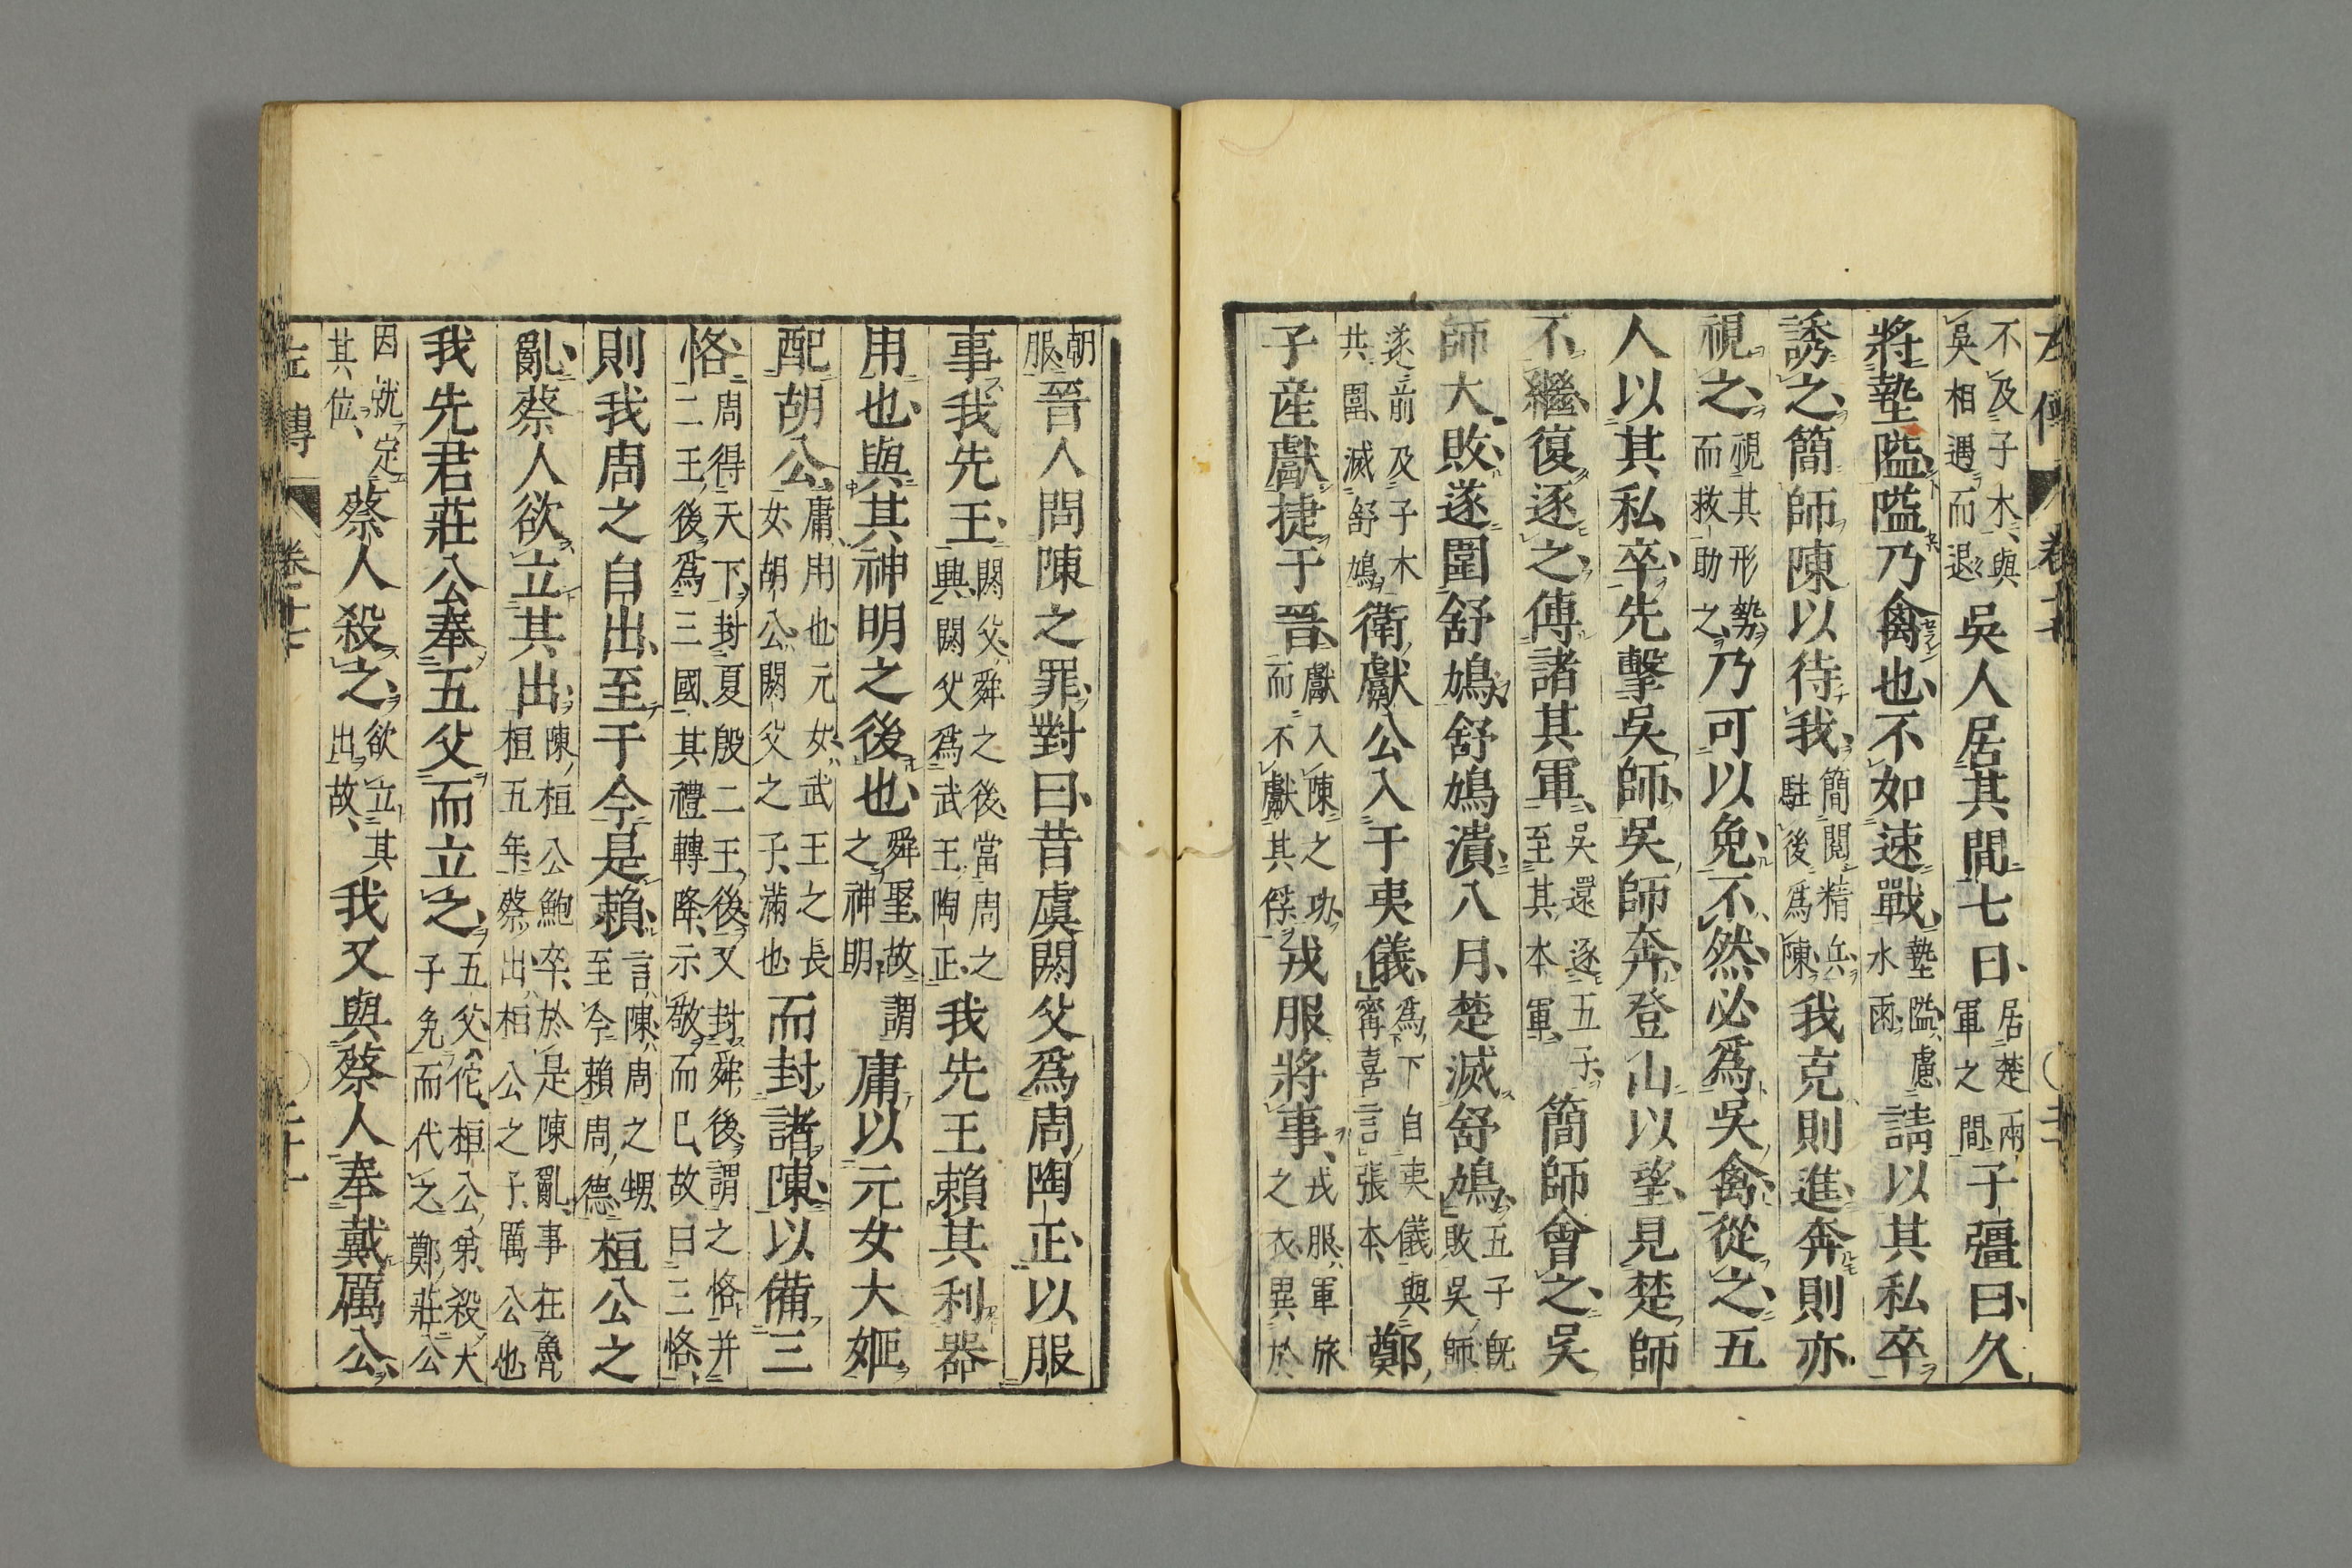 不及子木與吳相遇而退吳人居其間七日居楚兩軍之間子彊曰久
將墊隘隘乃禽也不如速戰墊隘慮水雨請以其私卒
誘之簡師陳以待我簡閱精兵駐後爲陳我克則進奔則亦
視之視其形勢而救助之乃可以免不然必爲吳禽從之五
人以其私卒先擊吳師吳師奔登山以望見楚師
不繼復逐之傅諸其軍吳還逐五子至其本軍簡師會之吳
師大敗遂圍舒鳩舒鳩潰八月楚滅舒鳩五子既敗吳師
遂前及子木共圍滅舒鳩衛獻公入于夷儀爲下自夷儀與甯喜言張本鄭
子產獻捷于晉獻入陳之功而不獻其俘戎服將事戎服軍旅之衣異於
朝服晉人問陳之罪對曰昔虞閼父爲周陶正以服
事我先王閼父舜之後當周之興閼父爲武王陶正我先王賴其利器
用也與其神明之後也舜聖故謂之神明庸以元女大姬
配胡公庸用也元女武王之長女胡公閼父之子滿也而封諸陳以備三
恪周得天下封夏殷二王後又封舜後謂之恪并二王後爲三國其禮轉降示敬而已故曰三恪
則我周之自出至于今是賴言陳周之甥至今賴周德桓公之
亂蔡人欲立其出陳桓公鮑卒於是陳亂事在魯桓五年蔡出桓公之子厲公也
我先君莊公奉五父而立之五父佗桓公弟殺大子免而代之鄭莊公
因就定其位蔡人殺之欲立其出故我又與蔡人奉戴厲公
左傳 卷十七 二十一